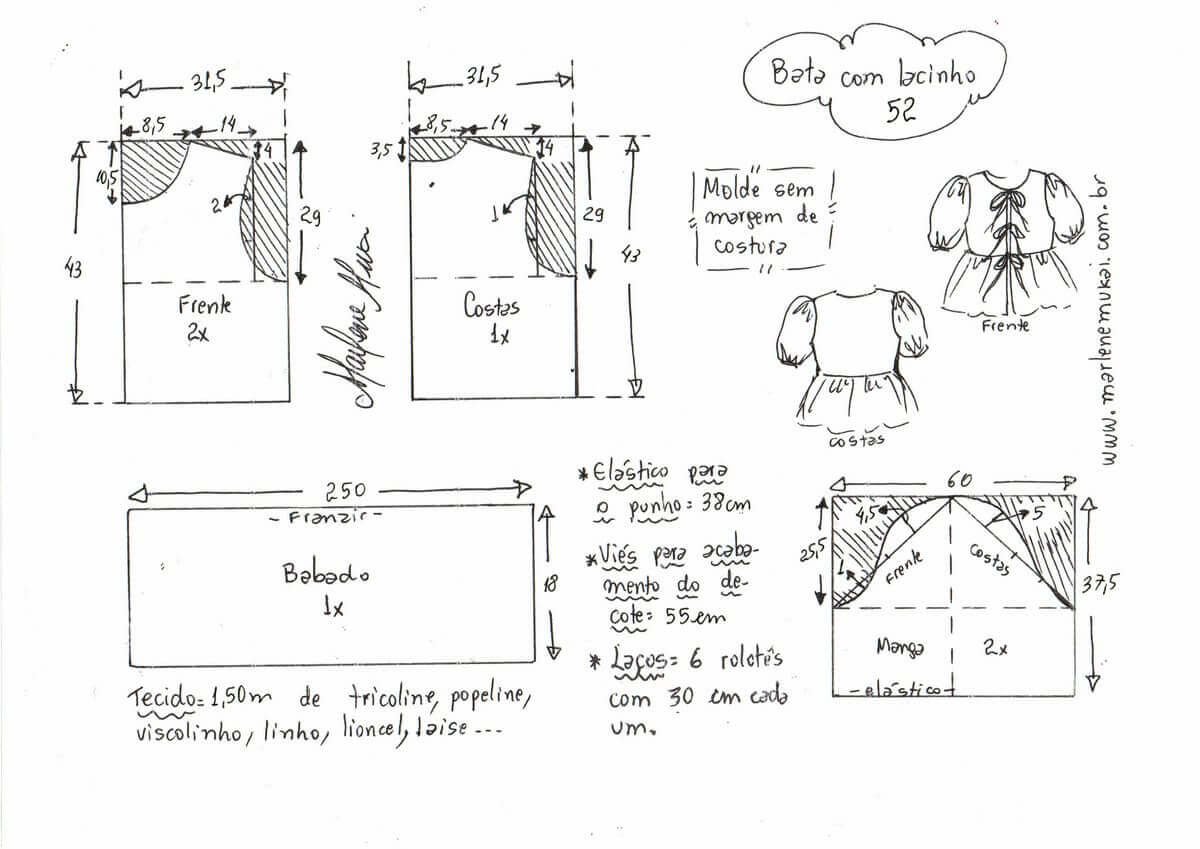 Bata com lacinho
52
31,5
8,5
14
4
10,5
2
29
43
Frente
2x
31,5
8,5
14
3,5
4
1
29
43
Costas
1x
Molde sem
margem de
costura
Frente
costas
www.marlenemukai.com.br
250
-Franzir-
Babado
1x
18
Tecido=1,50m de tricoline, popeline,
viscolinho, linho, lioncel, laise...
*Elástico para
o punho=38cm
*Viés para acaba-
mento do de-
cote=55cm
*Laços=6 rolotês
com 30 cm cada
um.
60
4,5
5
25,5
Frente
Costas
1
37,5
Manga 2x
-elástico-